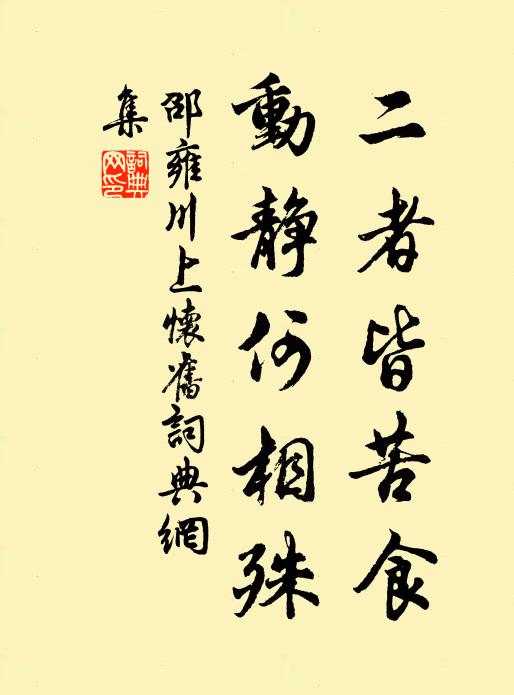 二者皆苦食
動静何相殊
邵雍川上懷舊詞典網
集
詞典
网印